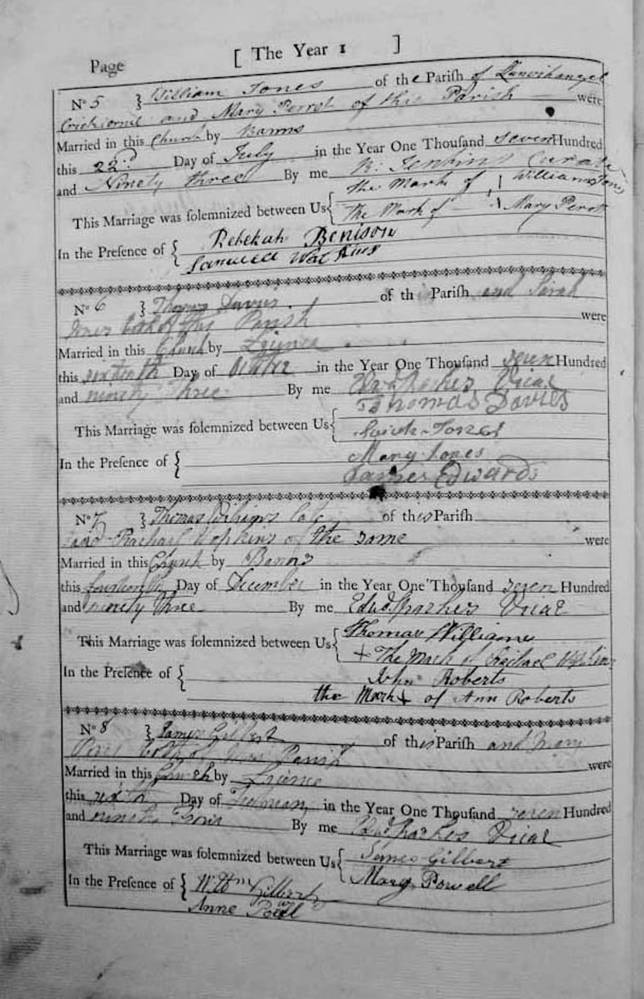 Page [ The Year 1 ]
No 5 } William Jones of the Parish of Lanvihangel
Crickornel and Mary Perrot of this Parish were
Married in this Church by Banns
this 22d Day of July in the Year One Thousand seven Hundred
and Ninety three By me W: Jenkins Curate
This Marriage was solemnized between Us { the Mark of William Jones
the Mark of Mary Perott
In the Presence of { Rebekah Benison
Samuell Watkins
No 6 } Thomas Davies of this Parish and Sarah
Jones both of this Parish were
Married in this Church by Licence
this sixteenth Day of October in the Year One Thousand seven Hundred
and ninety three By me Edw Parkes Vicar
This Marriage was solemnized between Us { Thomas Davies
Sarah Jones
In the Presence of { Mary Jones
James Edwards
No 7 } Thomas Williams of this Parish
and Rachael Hopkins of the same were
Married in this Church by Banns
this fourteenth Day of December in the Year One Thousand seven Hundred
and ninety three By me Edwd Parkes Vicar
This Marriage was solemnized between Us { Thomas Williams
+ The Mark of Rachael Hopkins
In the Presence of { John Roberts
the Mark + of Ann Roberts
No 8 } James Gilbert of this Parish and Mary
both of this Parish were
Married in this Church by Licence
this sixth Day of February in the Year One Thousand seven Hundred
and ninety By me Edw Parkes Vicar
This Marriage was solemnized between Us { James Gilbert
Mary Powell
In the Presence of { Willm Gilbert
Anne